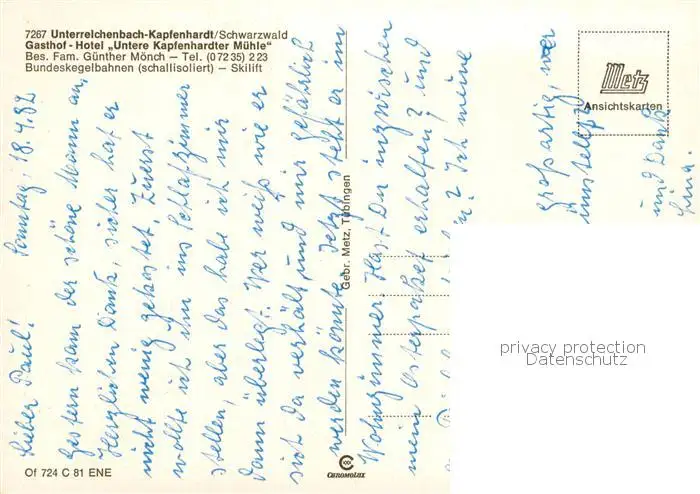 7267 Unterreichenbach-Kapfenhardt/Schwarzwald
Gasthof - Hotel „Untere Kapfenhardter Mühle“
Bes. Fam. Günther Mönch — Tel. (0 72 35) 2 23
Bundeskegelbahnen (schallisoliert) — Skilift
Metz
Ansichtskarten
Gebr. Metz, Tübingen
Lieber Paul! Sonntag, 18.4.82
Gestern kam der schöne Mann an,
Herzlichen Dank, sicher hat er
nicht wenig gekostet. Zuerst
wollte ich ihn ins Schlafzimmer
stellen, aber das habe ich mir
dann überlegt. Wer weiß wie er
sich da verhält und mir gefährlich
werden könnte. Jetzt steht er im
Wohnzimmer. Hast Du inzwischen
mein Osterpaket erhalten? und
? Ich meine
Großartig, wer
und Dank
privacy protection
Datenschutz
Of 724 C 81 ENE
CHROMOLUX